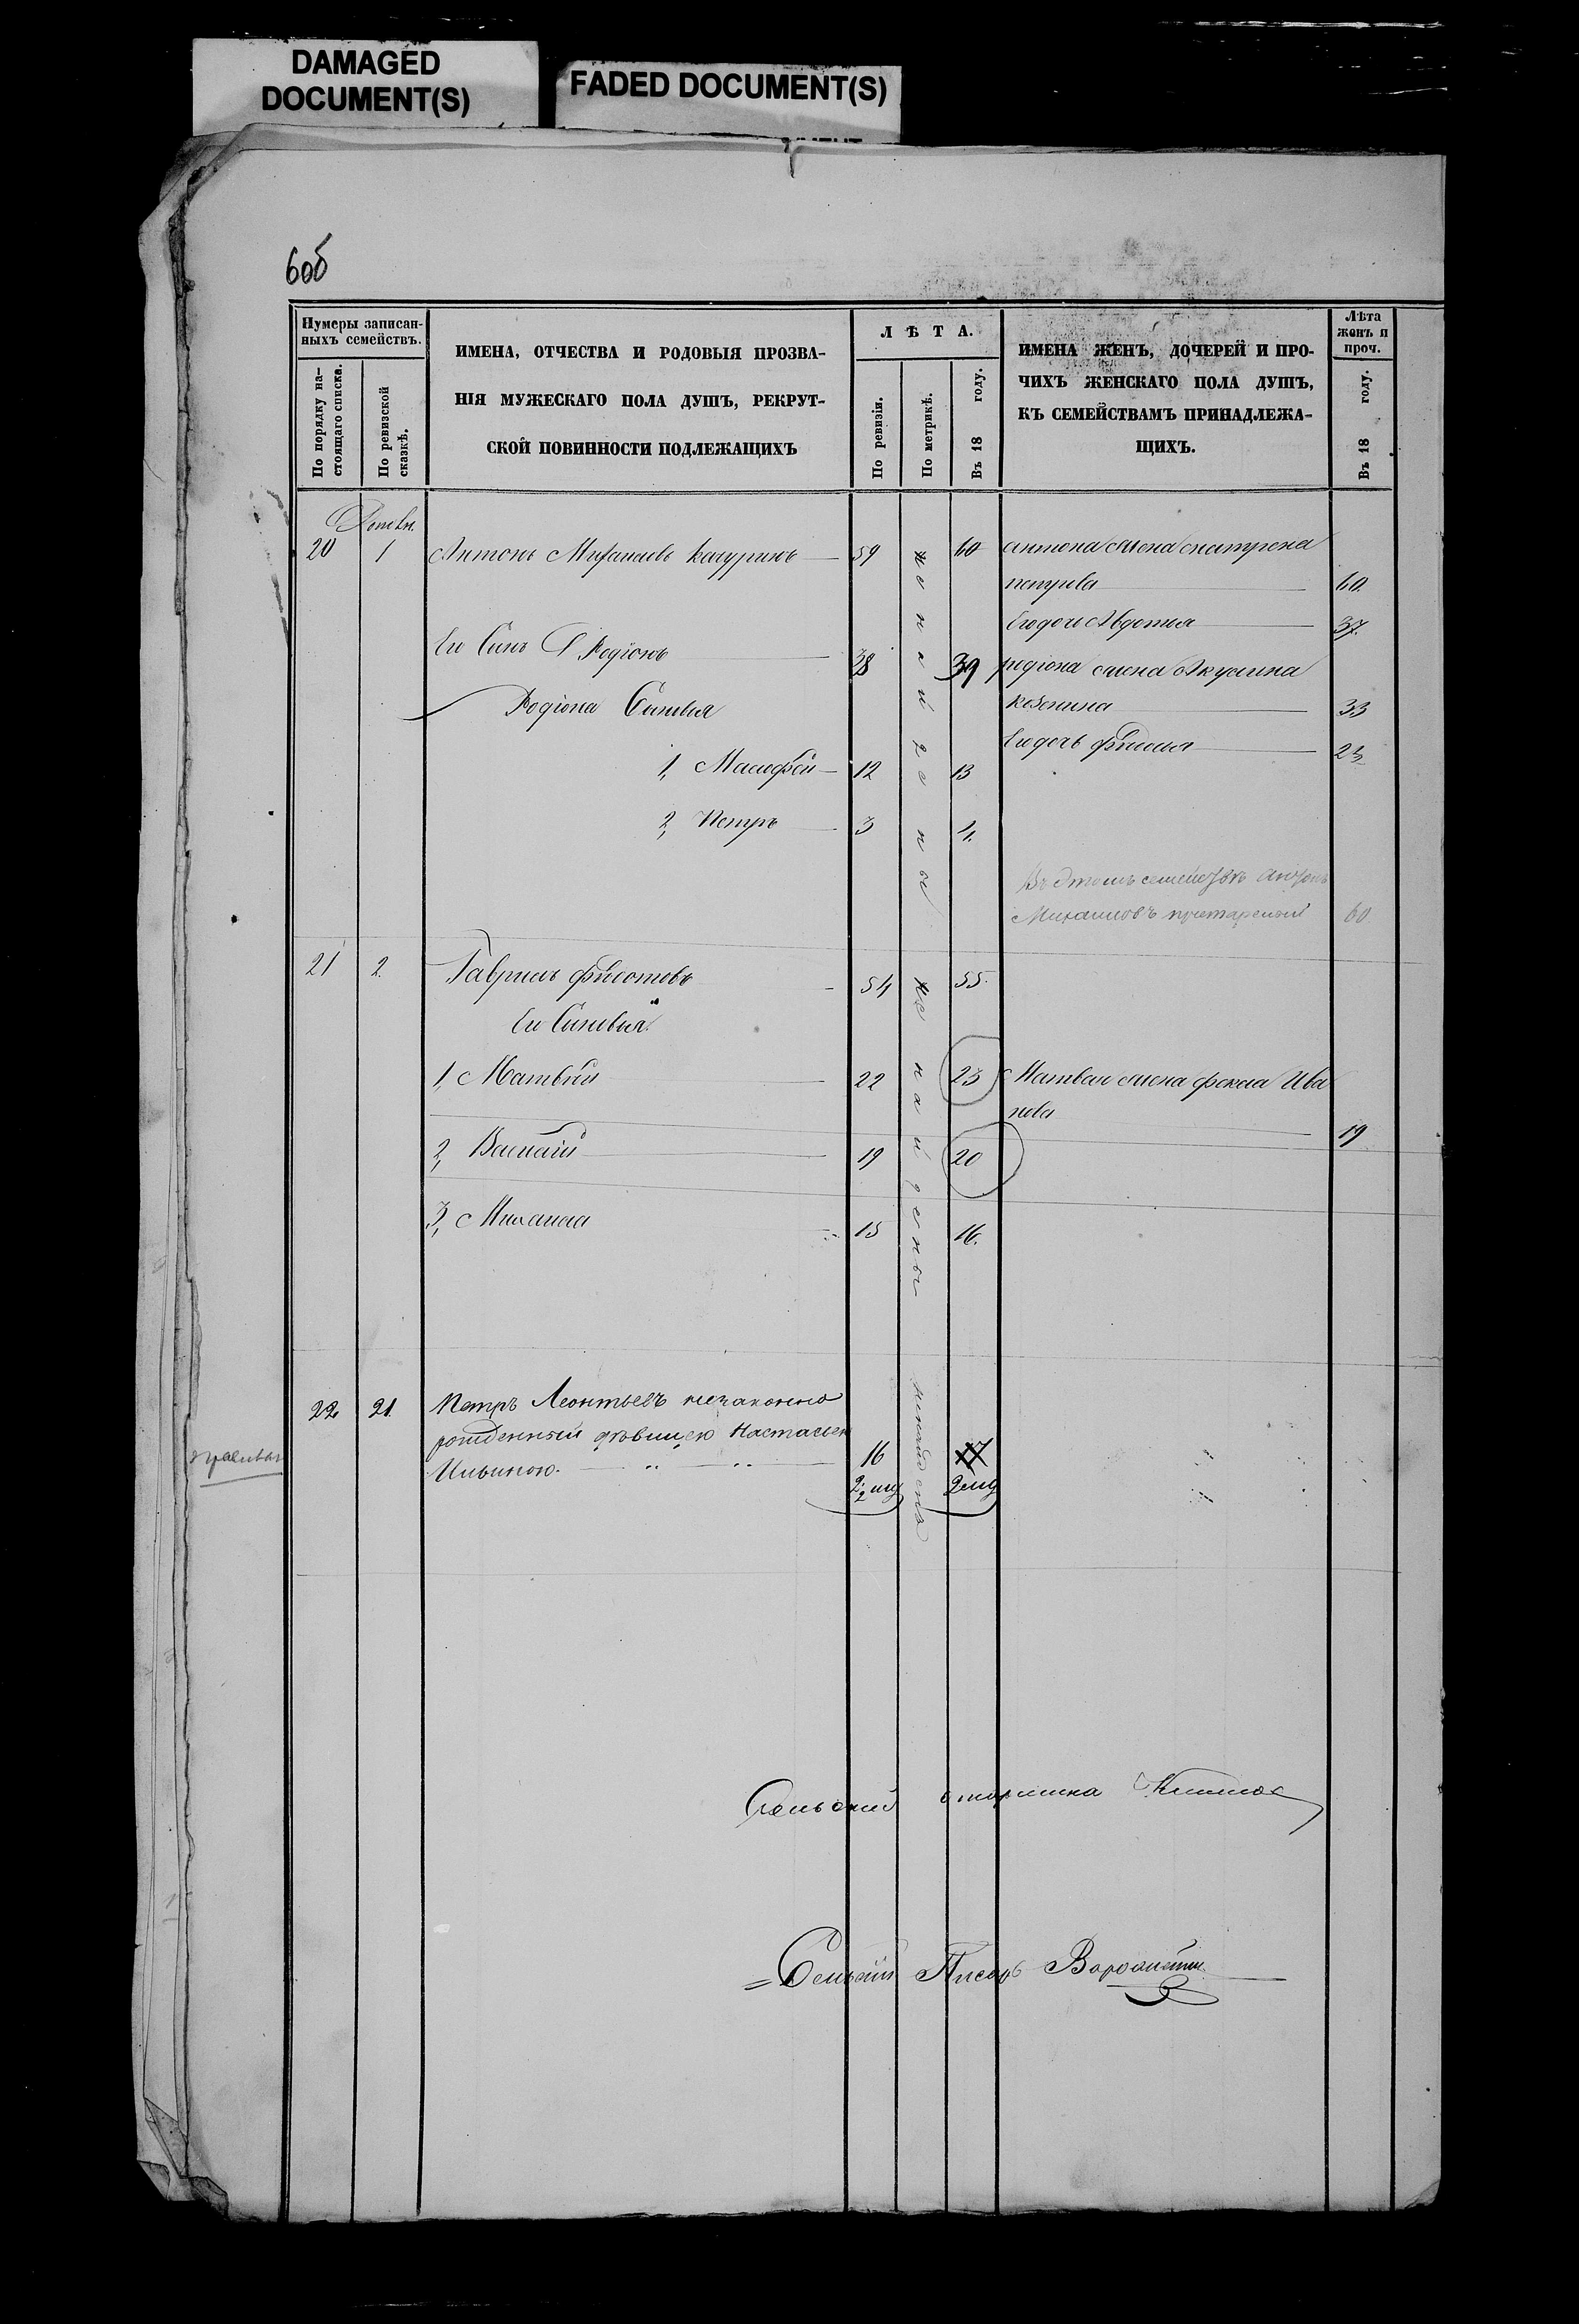 DAMAGED
DOCUMENT(S)
FADED DOCUMENT(S)
60об
Нумеры записан-
ныхъ семействъ.
По порядку на-
стоящаго списка.
По ревизской
сказкѣ.
ИМЕНА, ОТЧЕСТВА И РОДОВЫЯ ПРОЗВА-
НІЯ МУЖЕСКАГО ПОЛА ДУШЪ, РЕКРУТ-
СКОЙ ПОВИННОСТИ ПОДЛЕЖАЩИХЪ
ЛѢТА.
По ревизіи.
По метрикѣ.
Въ 18 году.
ИМЕНА ЖЕНЪ, ДОЧЕРЕЙ И ПРО-
ЧИХЪ ЖЕНСКАГО ПОЛА ДУШЪ,
КЪ СЕМЕЙСТВАМЪ ПРИНАДЛЕЖА-
ЩИХЪ.
Лѣта
женъ и
проч.
Въ 18 году.
20 1 Антонъ Михайловъ 59 60 Антона жена
петрова 60.
Его дочь Авдотья 37.
Его Сынъ Родіонъ 38 39 родіона жена Акулина
33
Родіона Сыновья
Его дочь 23
1, 12 13
2, Петръ 3 4.
не найдены
Въ этомъ семействѣ Антонъ
Михаиловъ престарелый 60
21 2. Гаврилъ 54 55.
Его Сыновья
1, Матвѣй 22 23 Матвея жена Ива
нова 19
2, Василій 19 20
3, Михаила 15 16.
не найдены
22 21. Петръ Леонтьевъ незаконно
рожденный дѣвицею Настасьею
Ильиною. 16 17
не найденъ
Сельский старшина
Сельскій Писарь